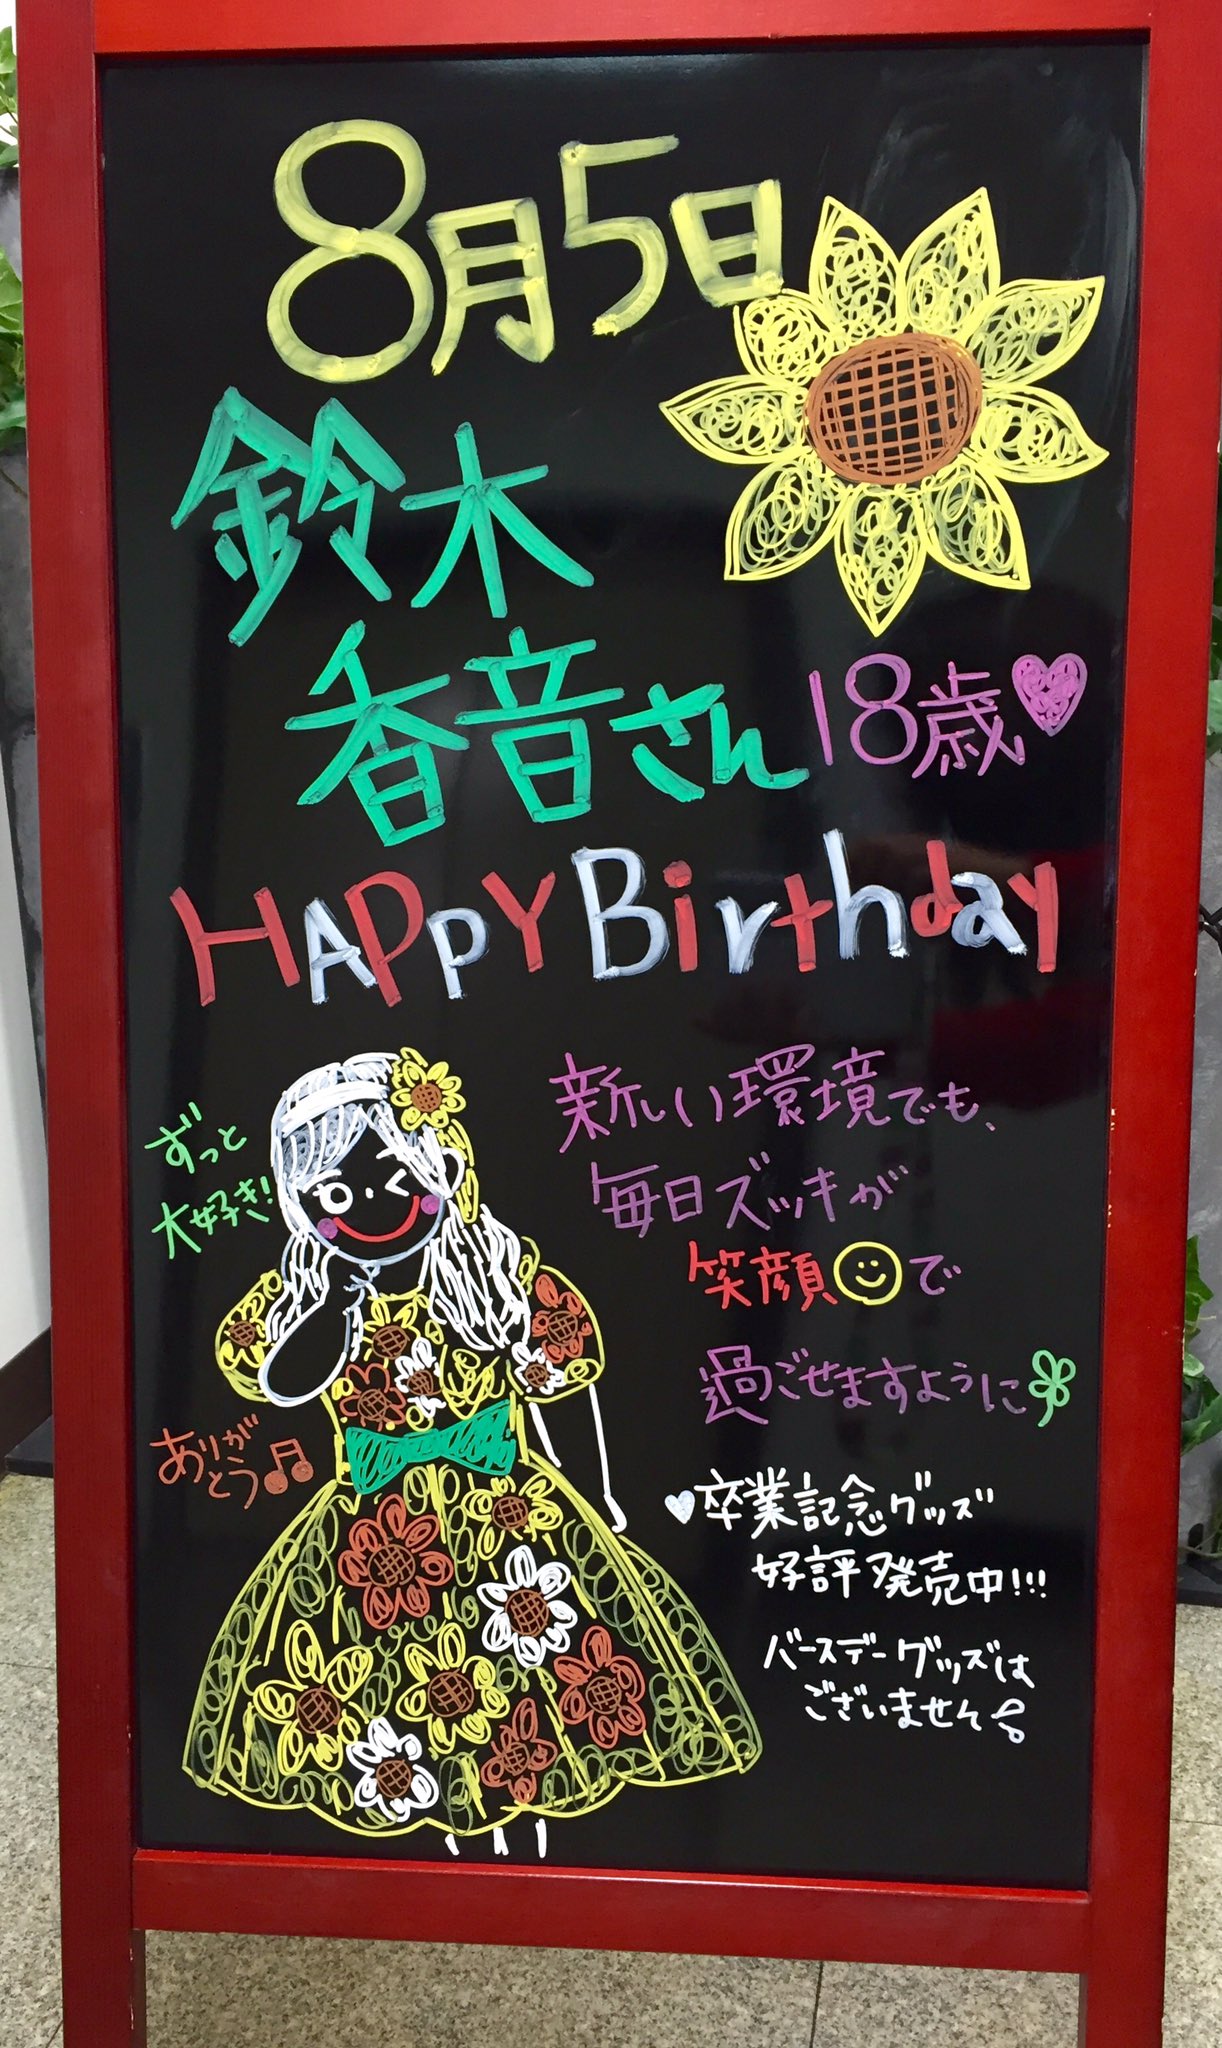 8月5日
鈴木
香音さん 18歳♥
HAPPY Birthday
新しい環境でも、
毎日ズッキが
笑顔☺で
過ごせますように
ずっと
大好き!
ありが
とう♫
♥卒業記念グッズ
好評発売中!!!
バースデーグッズは
ございません